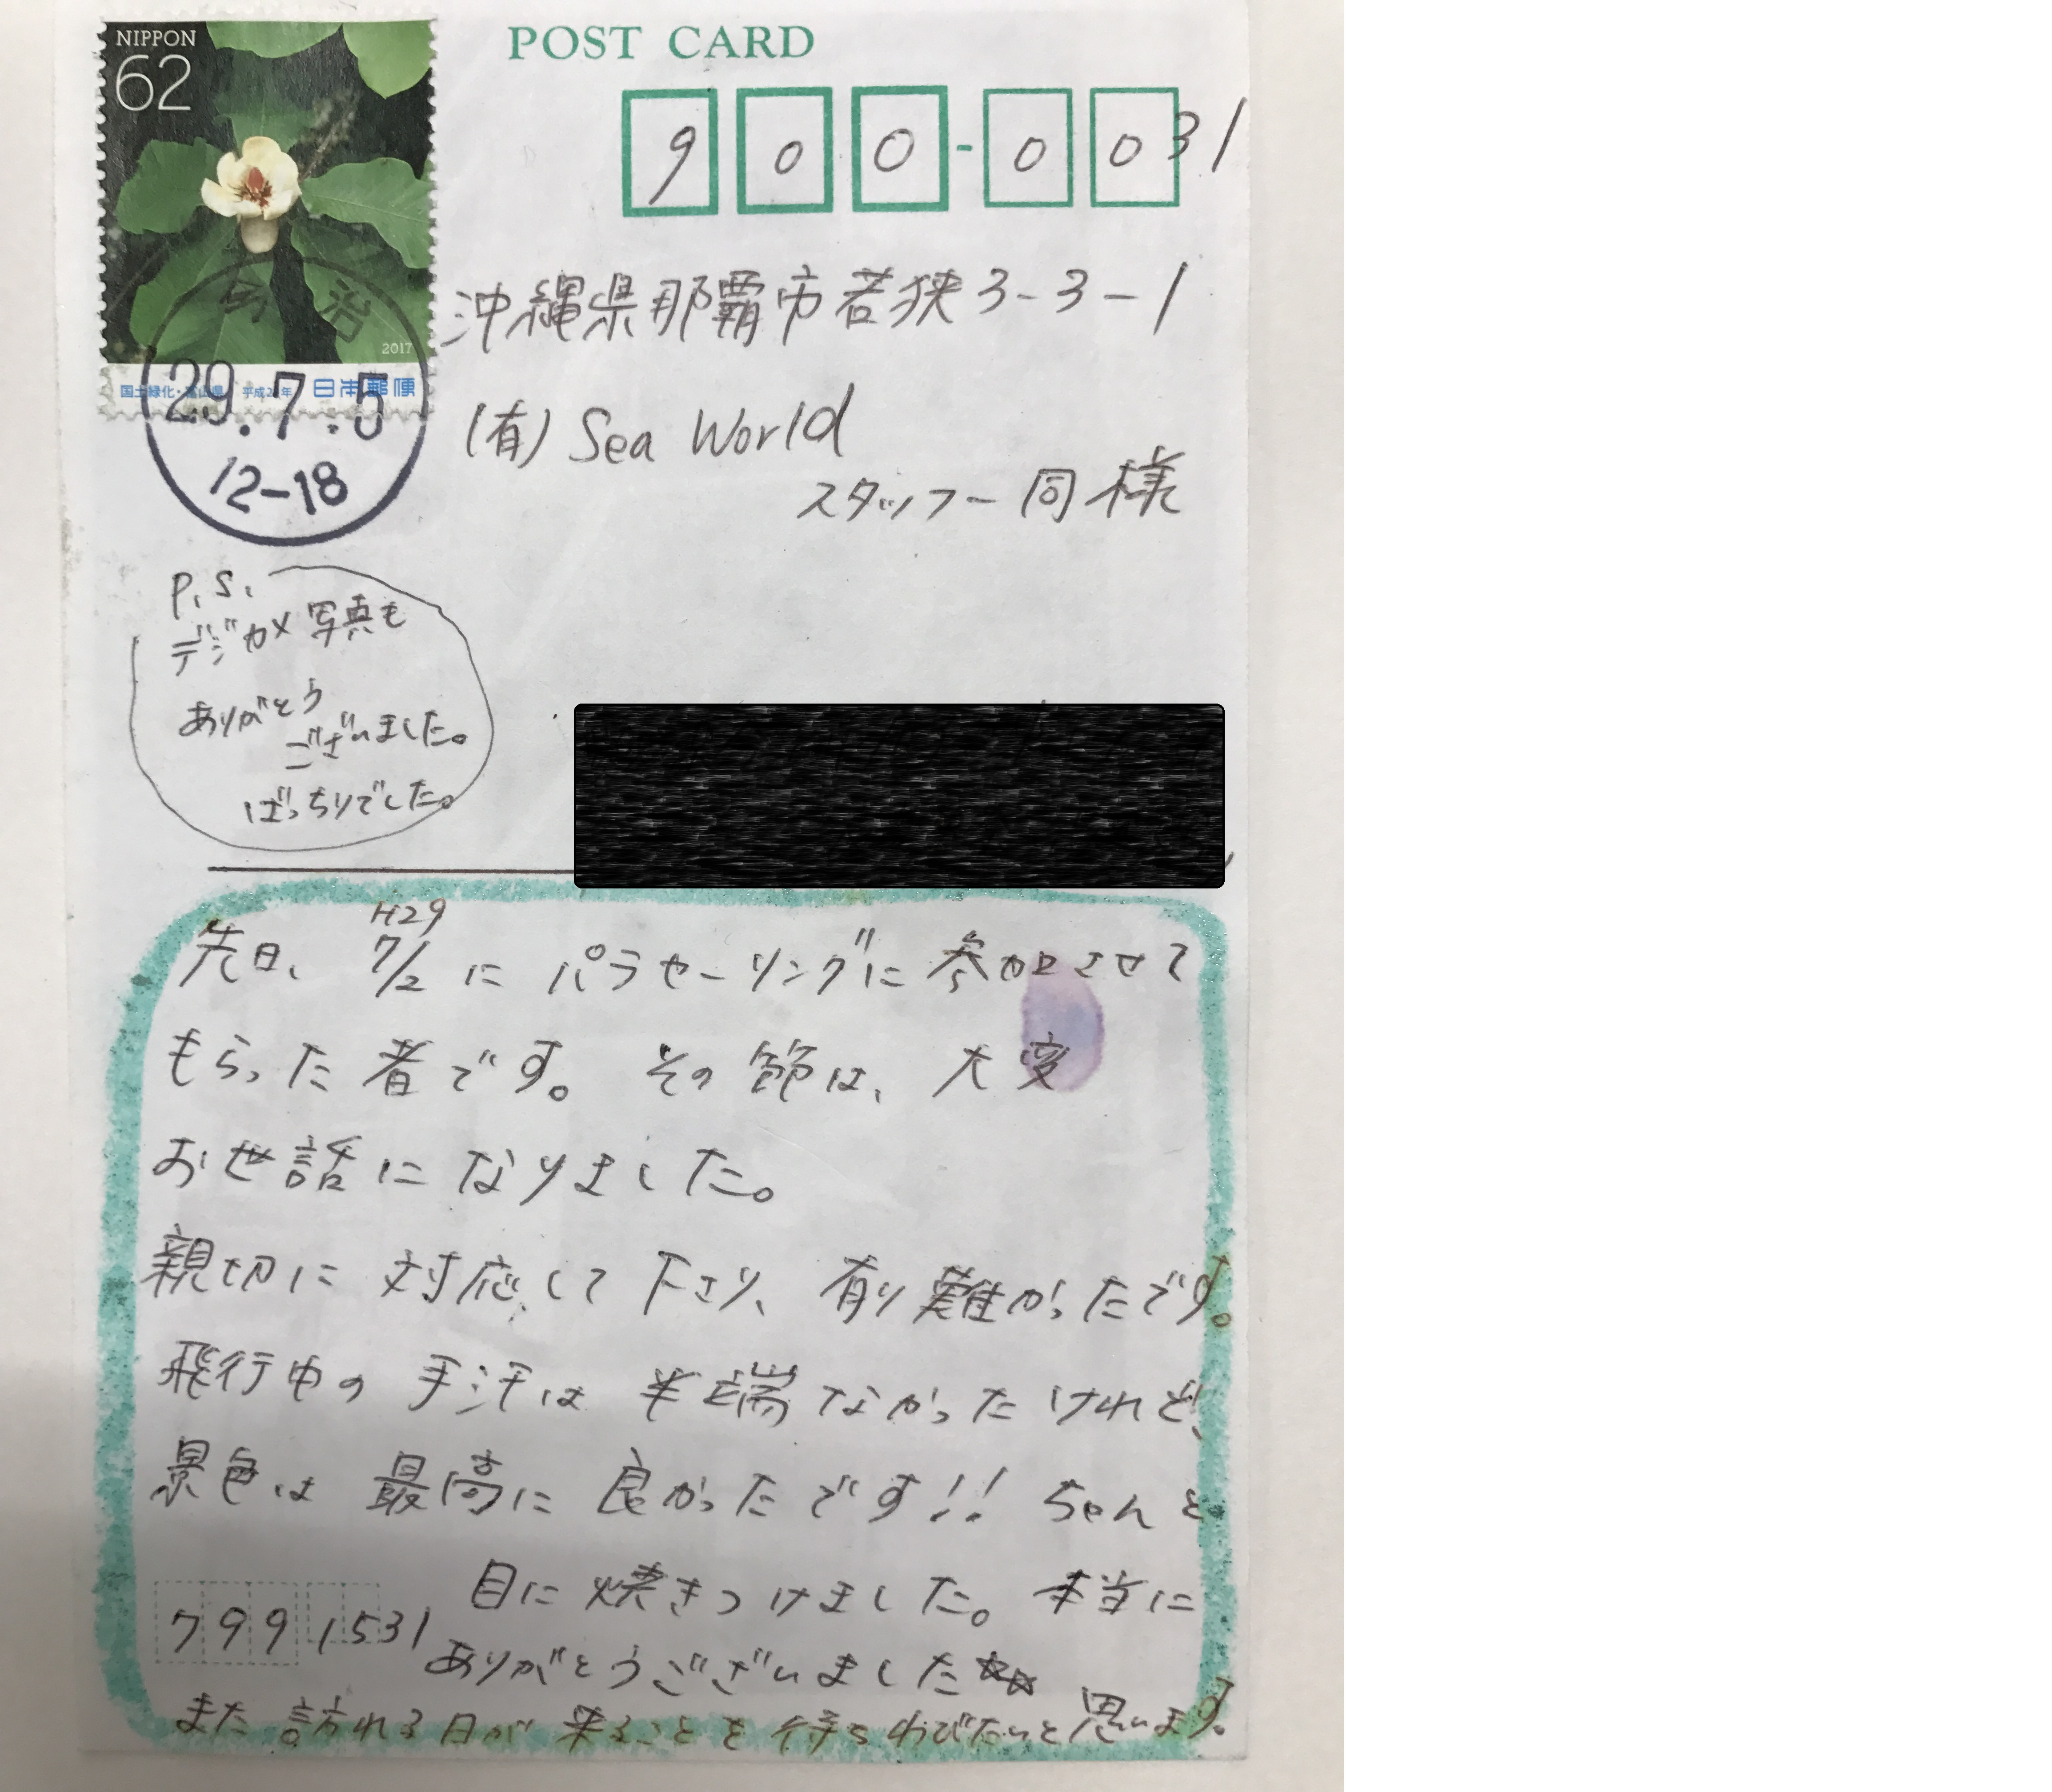 NIPPON
62
2017
国土緑化・富山県 平成29年 日本郵便
今 治
29.7.5
12-18
POST CARD
900-0031
沖縄県那覇市若狭3-3-1
(有) Sea World
スタッフ一同様
P.S.
デジカメ写真も
ありがとう
ございました。
ばっちりでした。
H29
先日、7/2にパラセーリングに参加させて
もらった者です。その節は、大変
お世話になりました。
親切に対応して下さり、有り難かったです。
飛行中の手汗は半端なかったけれど、
景色は最高に良かったです!! ちゃんと
目に焼きつけました。本当に
799 1531
ありがとうございました☆☆
また訪れる日が来ることを待ちわびたいと思います。